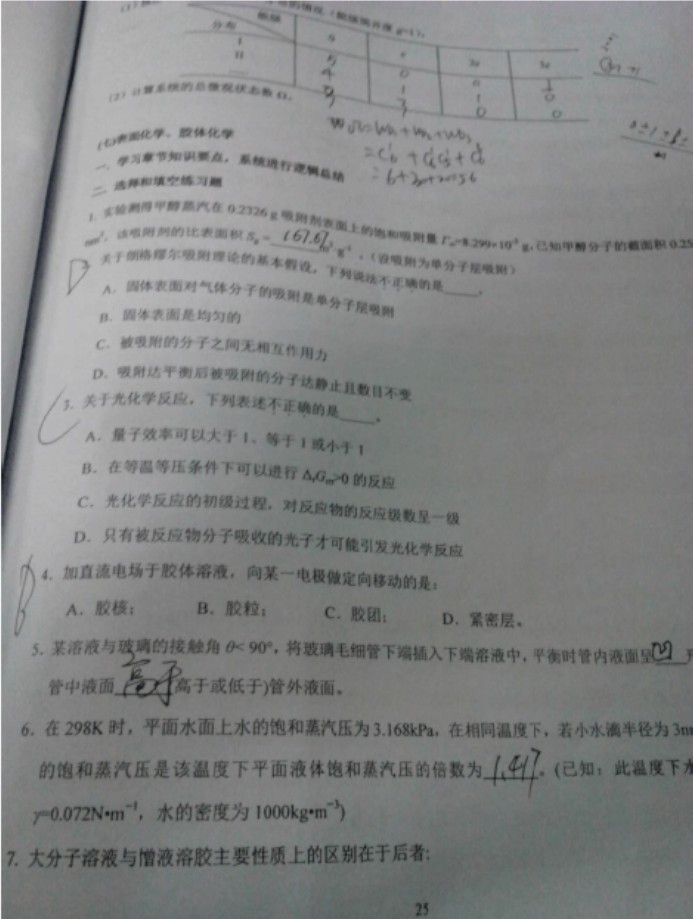 分布
能级
0
ε
2ε
3ε
I
5
0
0
1
II
4
1
0
3
3
0
0
(2) 计算系统的总微观状态数 Ω。
(七)表面化学、胶体化学
一、学习章节知识要点，系统进行逻辑总结
二、选择和填空练习题
1. 实验测得甲醇蒸汽在 0.2326 g 吸附剂表面上的饱和吸附量 Γ∞=8.299×10⁻³ g, 已知甲醇分子的截面积 0.25
nm², 该吸附剂的比表面积 Sg = 167.67 m²·g⁻¹ 。(设吸附为单分子层吸附)
D 2. 关于朗格缪尔吸附理论的基本假设，下列说法不正确的是____。
A. 固体表面对气体分子的吸附是单分子层吸附
B. 固体表面是均匀的
C. 被吸附的分子之间无相互作用力
D. 吸附达平衡后被吸附的分子达静止且数目不变
C 3. 关于光化学反应，下列表述不正确的是____。
A. 量子效率可以大于 1、等于 1 或小于 1
B. 在等温等压条件下可以进行 ΔrGm>0 的反应
C. 光化学反应的初级过程，对反应物的反应级数呈一级
D. 只有被反应物分子吸收的光子才可能引发光化学反应
B 4. 加直流电场于胶体溶液，向某一电极做定向移动的是:
A. 胶核; B. 胶粒; C. 胶团; D. 紧密层。
5. 某溶液与玻璃的接触角 θ< 90°, 将玻璃毛细管下端插入下端溶液中, 平衡时管内液面呈 凹
管中液面 高于 高于或低于)管外液面。
6. 在 298K 时, 平面水面上水的饱和蒸汽压为 3.168kPa, 在相同温度下, 若小水滴半径为 3nm
的饱和蒸汽压是该温度下平面液体饱和蒸汽压的倍数为 1.417 。(已知: 此温度下水
γ=0.072N•m⁻¹, 水的密度为 1000kg•m⁻³)
7. 大分子溶液与憎液溶胶主要性质上的区别在于后者:
25